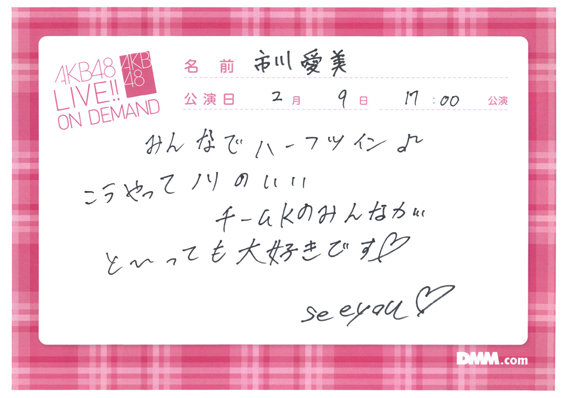 AKB48
LIVE!!
ON DEMAND
AKB
48
名前 市川愛美
公演日 2月 9日 17:00 公演
みんなでハーフツイン♪
こうやってノリのいい
チームKのみんなが
と〜っても大好きです♡
seeyou♡
DMM.com